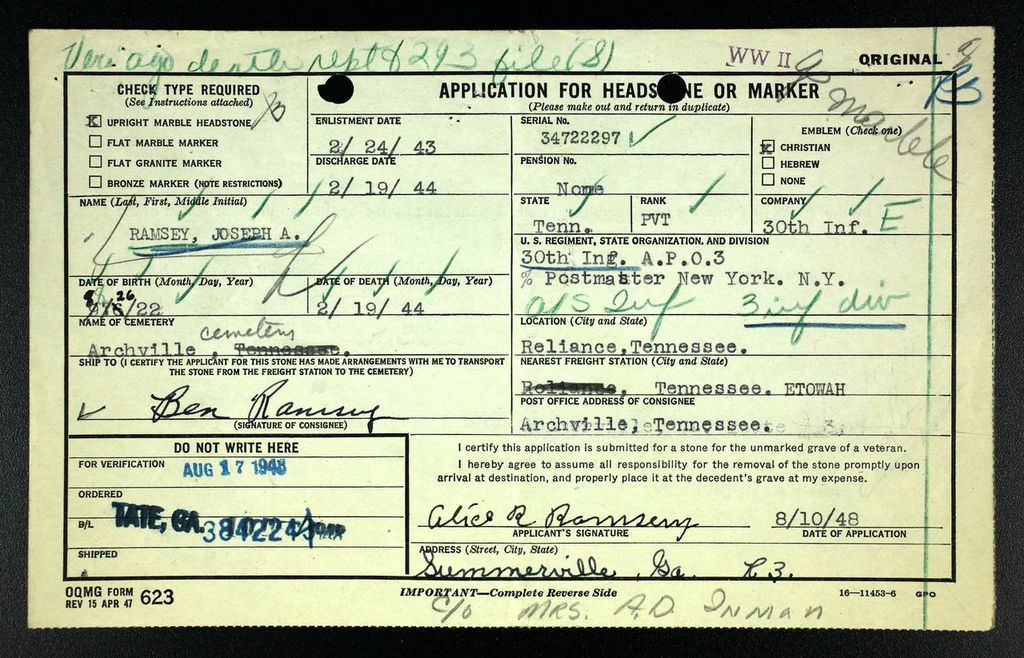 Veri ago death rept & 293 file (S)
WW II
ORIGINAL
CHECK TYPE REQUIRED
(See Instructions attached)
X UPRIGHT MARBLE HEADSTONE
FLAT MARBLE MARKER
FLAT GRANITE MARKER
BRONZE MARKER (NOTE RESTRICTIONS)
APPLICATION FOR HEADSTONE OR MARKER
(Please make out and return in duplicate)
marble
ENLISTMENT DATE
2/ 24/ 43
DISCHARGE DATE
2/ 19/ 44
SERIAL No.
34722297
PENSION No.
None
EMBLEM (Check one)
X CHRISTIAN
HEBREW
NONE
NAME (Last, First, Middle Initial)
RAMSEY, JOSEPH A.
STATE
Tenn.
RANK
PVT
COMPANY
30th Inf. E
U. S. REGIMENT, STATE ORGANIZATION, AND DIVISION
30th Inf. A.P.O.3
% Postmaster New York. N.Y.
Inf 3 inf div
DATE OF BIRTH (Month, Day, Year)
26
/22
DATE OF DEATH (Month, Day, Year)
2/ 19/ 44
NAME OF CEMETERY
cemetery
Archville , Tennessee.
LOCATION (City and State)
Reliance,Tennessee.
SHIP TO (I CERTIFY THE APPLICANT FOR THIS STONE HAS MADE ARRANGEMENTS WITH ME TO TRANSPORT
THE STONE FROM THE FREIGHT STATION TO THE CEMETERY)
Ben Ramsey
(SIGNATURE OF CONSIGNEE)
NEAREST FREIGHT STATION (City and State)
Reliance, Tennessee. ETOWAH
POST OFFICE ADDRESS OF CONSIGNEE
Archville, Tennessee.
DO NOT WRITE HERE
FOR VERIFICATION
AUG 17 1948
ORDERED
B/L
TATE, GA.
SHIPPED
I certify this application is submitted for a stone for the unmarked grave of a veteran.
I hereby agree to assume all responsibility for the removal of the stone promptly upon
arrival at destination, and properly place it at the decedent's grave at my expense.
Alice R Ramsey
APPLICANT'S SIGNATURE
8/10/48
DATE OF APPLICATION
ADDRESS (Street, City, State)
Summerville, Ga. R3.
OQMG FORM
REV 15 APR 47 623
IMPORTANT—Complete Reverse Side
16—11453-6 GPO
c/o MRS. A.D. INMAN